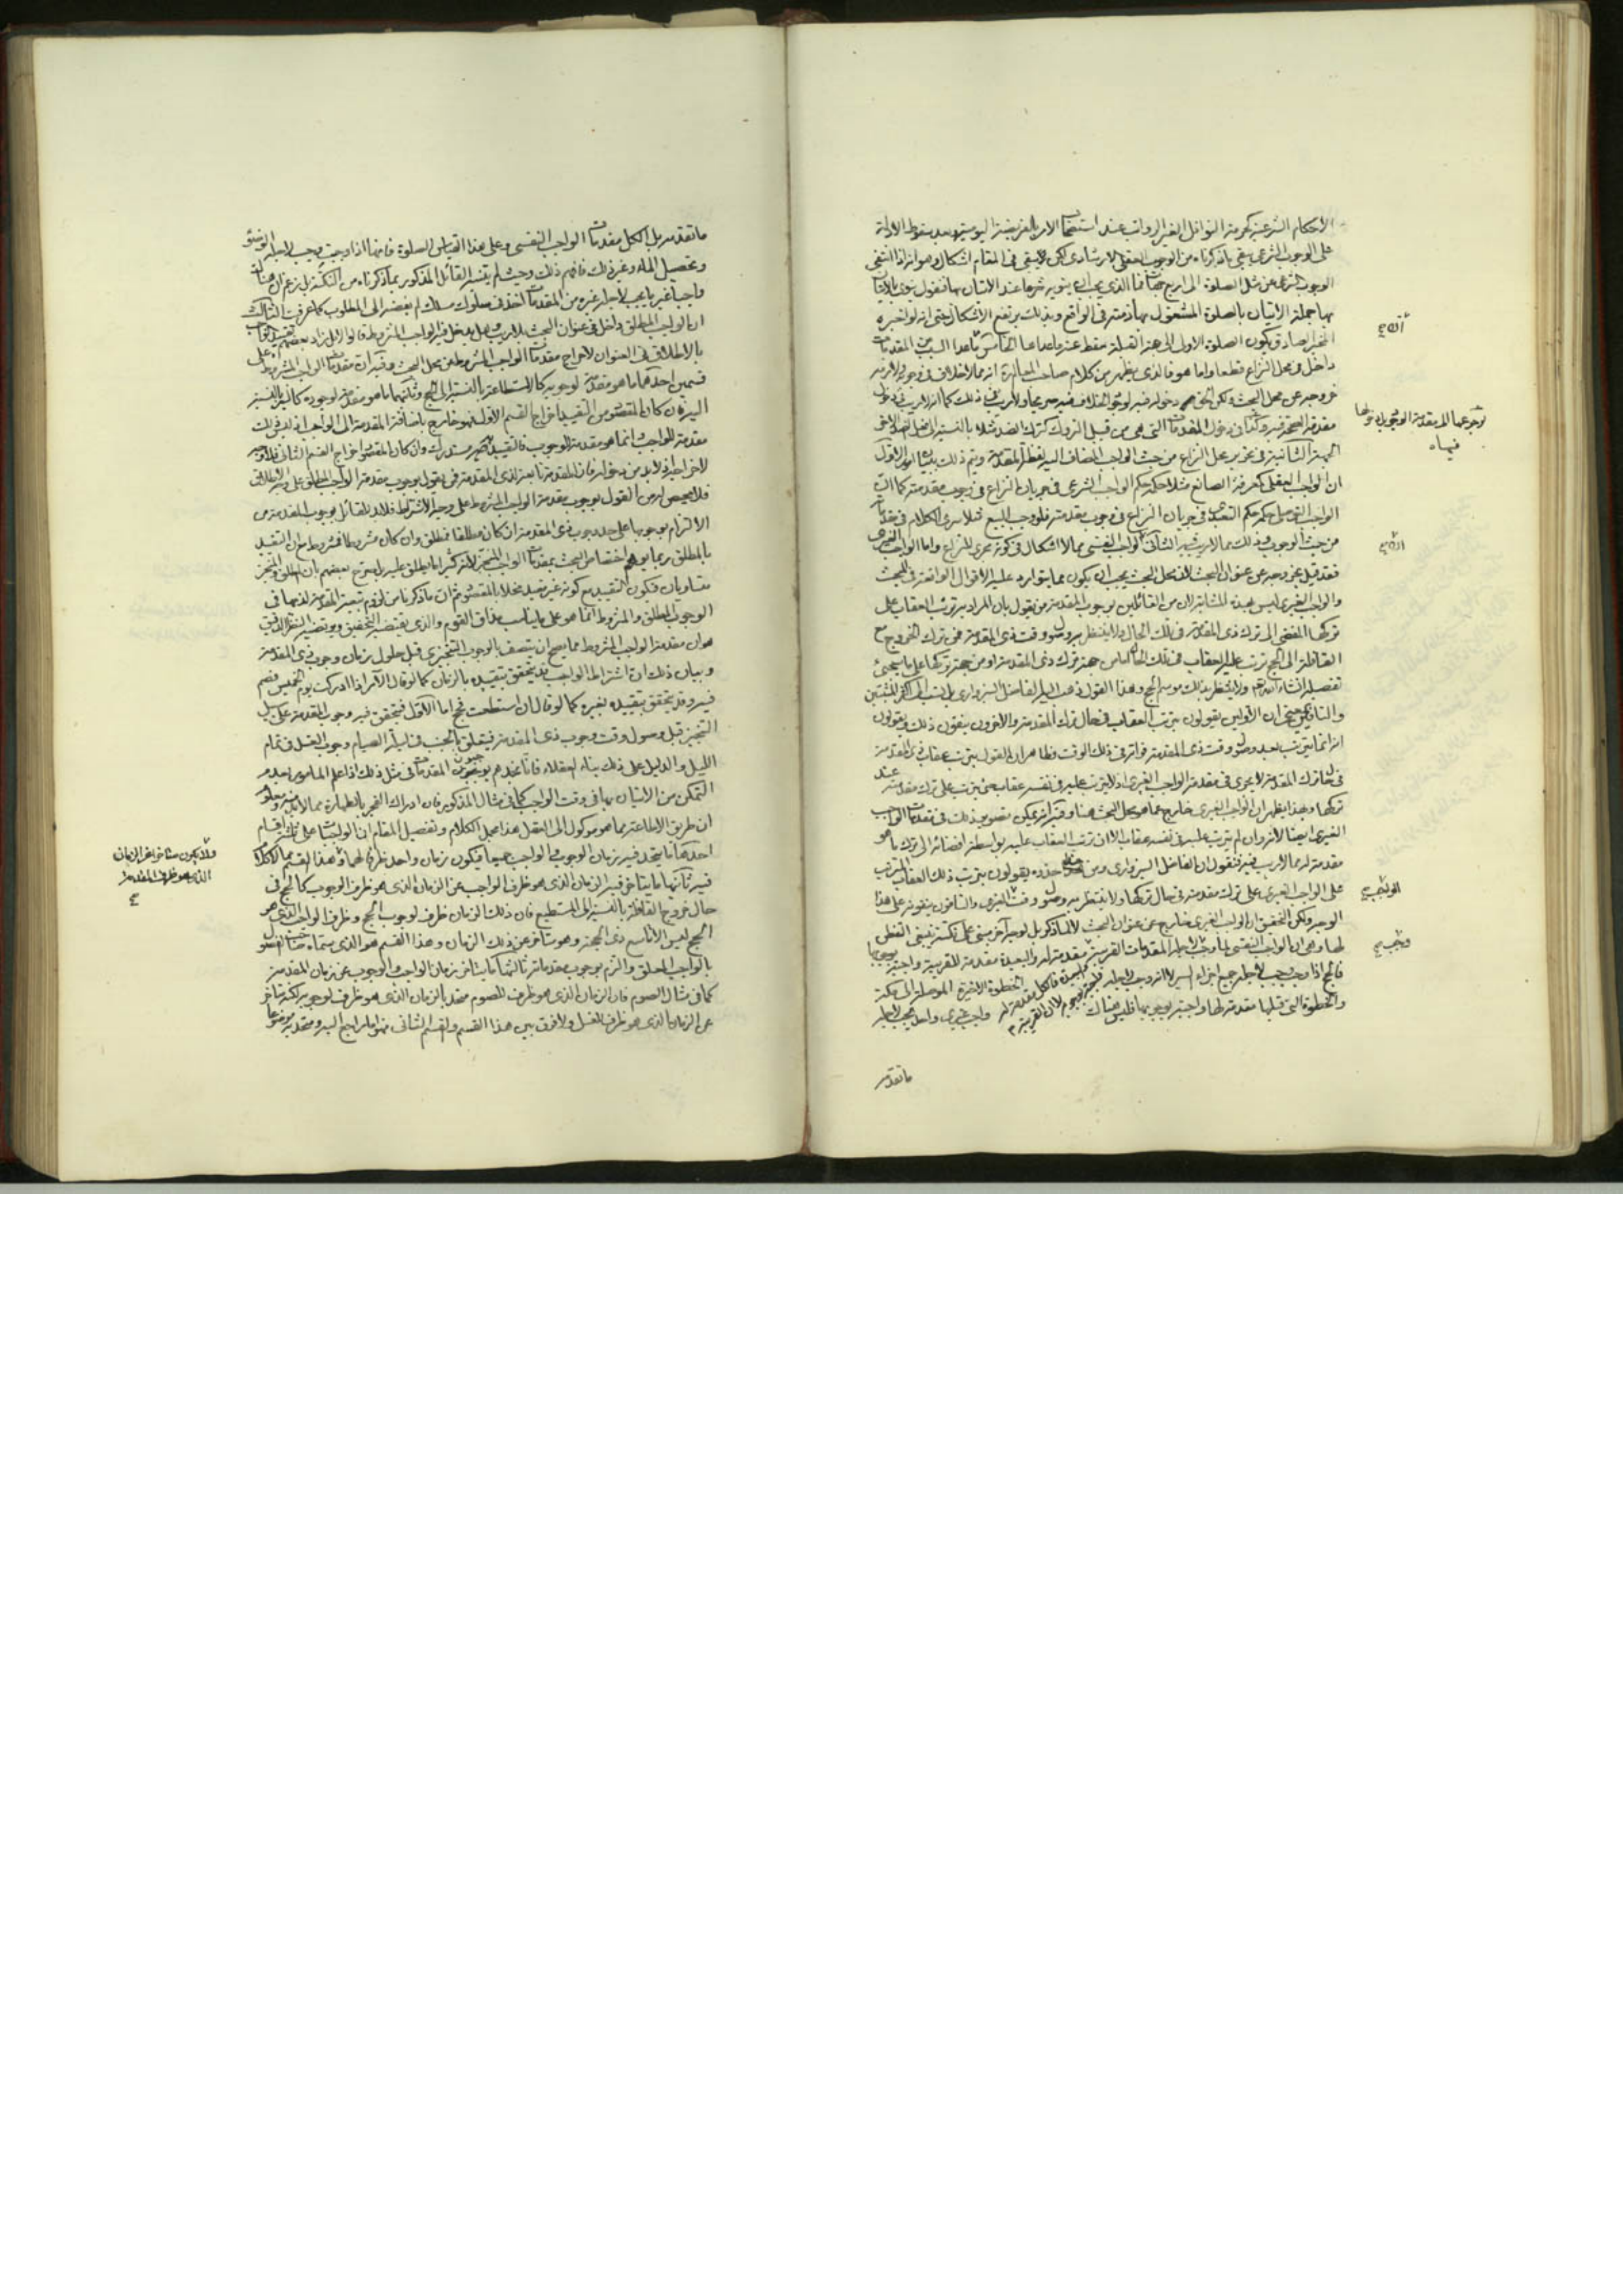 الاحكام الشرعية كحرمة النوافل الغير الرواتب عند استضاء الامر بالفريضة اليومية وبعد سقوط الادلة
على الوجوب الشرعى بقى ما ذكرناه من الوجوب العقلى الارشادى لكن لا يبقى فى المقام اشكال وهو انه اذا انتفى
الوجوب الشرعى عن مثل الصلوة الى اربع جهات فما الذى يجب ان ينويه شرعا عند الاتيان بها فنقول ينوى بالاتيان
بها جملة الاتيان بالصلوة المشغول بها ذمته فى الواقع وبذلك يرتفع الاشكال حتى انه لو اخبره
المخبر الصادق بكون الصلوة الاولى الى هذه القبلة سقط عنه ما عداها الخامس ما عدا السبب من المقدمات
داخل فى محل النزاع قطعا واما هو فالذى يظهر من كلام صاحب المعالم انه مما لا خلاف فى وجوبه
خروجه عن محل البحث ولكن الحق دخوله فيه لوجود الخلاف فيه صريحا ولا ريب فى ذلك كما انه لا ريب فى دخول
مقدمة الصحة فيه وكذا فى دخول المقدمات التى هى من قبيل التروك كترك الضد مثلا بالنسبة الى فعل الضد الاخر
الجهة الثانية فى تحرير محل النزاع من حيث الواجب المضاف اليه لفظ المقدمة ويتم ذلك ببيان امور الاول
ان الواجب العقلى كمعرفة الصانع مثلا حكمه حكم الواجب الشرعى فى جريان النزاع فى وجوب مقدمته كما ان
الواجب التوصلى حكمه حكم التعبدى فى جريان النزاع فى وجوب مقدمته فلو وجب البيع مثلا سرى الكلام فى مقدماته
من حيث الوجوب وذلك مما لا ريب فيه الثانى الواجب النفسى مما لا اشكال فى كونه مجرى للنزاع واما الواجب الغيرى
فقد قيل بخروجه عن عنوان البحث لان محل البحث يجب ان يكون مما يتوارد عليه الاقوال الواقعة فى المبحث
والواجب الغيرى ليس بهذه المثابة لان من القائلين بوجوب المقدمة من يقول بان المراد به ترتب العقاب على
تركها المفضى الى ترك ذى المقدمة فى تلك الحال ولا ينتظر به وصول وقت ذى المقدمة فمن ترك الخروج مع
القافلة الى الحج ترتب عليه العقاب فى تلك الحال اما من جهة ترك ذى المقدمة او من جهة تركها على ما سيجئ
تفصيله انشاء الله تعم ولا ينتظر بذلك موسم الحج وهذا القول ذهب اليه الفاضل السبزوارى بل نسب الى اكثر المثبتين
والنافين حتى ان الاولين يقولون بترتب العقاب فى حال ترك المقدمة والاخرون ينفون ذلك ويقولون
انه انما يترتب بعد وصول وقت ذى المقدمة فواته فى ذلك الوقت وظاهر ان القول بترتب عقاب ذى المقدمة
فى حال ترك المقدمة لا يجرى فى مقدمة الواجب الغيرى اذ لا يترتب عليه فى نفسه عقاب حتى يترتب على ترك مقدمته عند
تركها وبهذا يظهر ان الواجب الغيرى خارج عما هو محل البحث هنا وفيه انه يمكن تصوير ذلك فى مقدمات الواجب
الغيرى ايضا لانه وان لم يترتب عليه فى نفسه عقاب الا ان ترتب العقاب عليه بواسطة افضائه الى ترك ما هو
مقدمة له مما لا ريب فيه فنقول ان الفاضل السبزوارى ومن حذا حذوه يقولون بترتب ذلك العقاب المترتب
على الواجب الغيرى على ترك مقدمته فى حال تركها ولا ينتظر به وصول وقت الغيرى والنافون ينفونه على هذا
الوجه ولكن التحقيق ان الواجب الغيرى خارج عن عنوان البحث لا لما ذكر بل لوجه آخر مبنى على نكتة ينبغى التفطن
لها وهى ان الواجب النفسى لما وجب لاجله المقدمات القريبة مقدمة له والبعيدة مقدمة للقريبة واجبة بوجوبها
فالحج اذا وجب وجب لاجله جميع اجزاء السير لا انه وجب لاجله الخطوة الاخيرة الموصلة الى مكة
والخطوة التى قبلها مقدمة لها واجبة بوجوبها فليس هناك واجب غيرى واحد يجب لاجله
ما تقدمه
الثانى
الواجب
وجب
ما تقدمه بل الكل مقدمات الواجب النفسى وعلى هذا القياس الصلوة فانها اذا وجبت وجب لاجلها الوضوء
وتحصيل الماء وغير ذلك فافهم ذلك وحيث لم يتنبه القائل المذكور بما ذكرناه من النكتة بل زعم ان هناك
واجبا غيريا يجب لاجله غيره من المقدمات اخذ فى سلوك مسلك لم يفضه الى المطلوب كما عرفت الثالث
ان الواجب المطلق داخل فى عنوان البحث بلا ريب وهل يدخل فيه الواجب المشروط قالوا لا بل زاد بعضهم تقييد الواجب
بالاطلاق فى العنوان لاخراج مقدمات الواجب المشروط عن محل البحث وفيه ان مقدمات الواجب المشروط على
قسمين احدهما ما هو مقدمة لوجوبه كالاستطاعة بالنسبة الى الحج وثانيهما ما هو مقدمة لوجوده كالسير بالنسبة
اليه فان كان المقصود من التقييد اخراج القسم الاول فهو خارج باضافة المقدمة الى الواجب اذ ليس ذلك
مقدمة للواجب وانما هو مقدمة الوجوب فالتقييد لغو مستدرك وان كان المقصود اخراج القسم الثانى فلا وجه
لاخراجه اذ لا بد من دخوله فان المقدمة تابعة لذى المقدمة فمن يقول بوجوب مقدمة الواجب المطلق على وجه الاطلاق
فلا محيص له من القول بوجوب مقدمة الواجب المشروط على وجه الاشتراط فلا بد للقائل بوجوب المقدمة من
الالتزام بوجوبها على حد وجوب ذى المقدمة ان كان مطلقا فمطلق وان كان مشروطا فمشروط مع ان التقييد
بالمطلق ربما يوهم اختصاص البحث بمقدمات الواجب المنجز لانه كثيرا ما يطلق عليه بل صرح بعضهم بان المطلق والمنجز
متساويان فيكون التقييد مع كونه غير مفيد مخلا بالمقصود ثم ان ما ذكرنا من لزوم تبعية المقدمة لذيها فى
الوجوب المطلق والمشروط انما هو على ما يناسب مذاق القوم والذى يقتضيه التحقيق ويقتضيه النظر الدقيق
هو ان مقدمة الواجب المشروط مما يصح ان يتصف بالوجوب التنجيزى قبل حلول زمان وجوب ذى المقدمة
وبيان ذلك ان اشتراط الواجب قد يتحقق بتقييده بالزمان كما لو قال الآمر اذا ادركت يوم الخميس فصم
فيه وقد يتحقق بتقييده بغيره كما لو قال ان استطعت فحج اما الاول فيتحقق فيه وجوب المقدمة على سبيل
التنجيز قبل وصول وقت وجوب ذى المقدمة فيتعلق بالجنب فى ليلة الصيام وجوب الغسل فى تمام
الليل والدليل على ذلك بناء العقلاء فانا نجدهم يوجبون المقدمات فى مثل ذلك اذا علم المامور بعدم
التمكن من الاتيان بها فى وقت الواجب كما فى مثال المذكور فان ادراك الفجر بالطهارة مما لا بد منه ومعلوم
ان طريق الاطاعة مما هو موكول الى العقل هذا مجمل الكلام وتفصيل المقام ان الواجبات على ثلثة اقسام
احدها ما يتحد فيه زمان الوجوب والواجب جميعا فيكون زمان واحد ظرفا لهما وهذا القسم مما لا كلام
فيه ثانيها ما يتاخر فيه الزمان الذى هو ظرف الواجب عن الزمان الذى هو ظرف الوجوب كالحج فى
حال خروج القافلة بالنسبة الى المستطيع فان ذلك الزمان ظرف لوجوب الحج وظرف الواجب الذى هو
الحج ليس الا تاسع ذى الحجة وهو متاخر عن ذلك الزمان وهذا القسم هو الذى سماه صاحب الفصول
بالواجب المعلق والتزم بوجوب مقدماته ثالثها ما يتاخر زمان الواجب والوجوب عن زمان المقدمة
كما فى مثال الصوم فان الزمان الذى هو ظرف للصوم متحد بالزمان الذى هو ظرف لوجوبه لكنه متاخر
عن الزمان الذى هو ظرف للغسل ولا فرق بين هذا القسم والقسم الثانى
الذى هو ظرف المقدمة